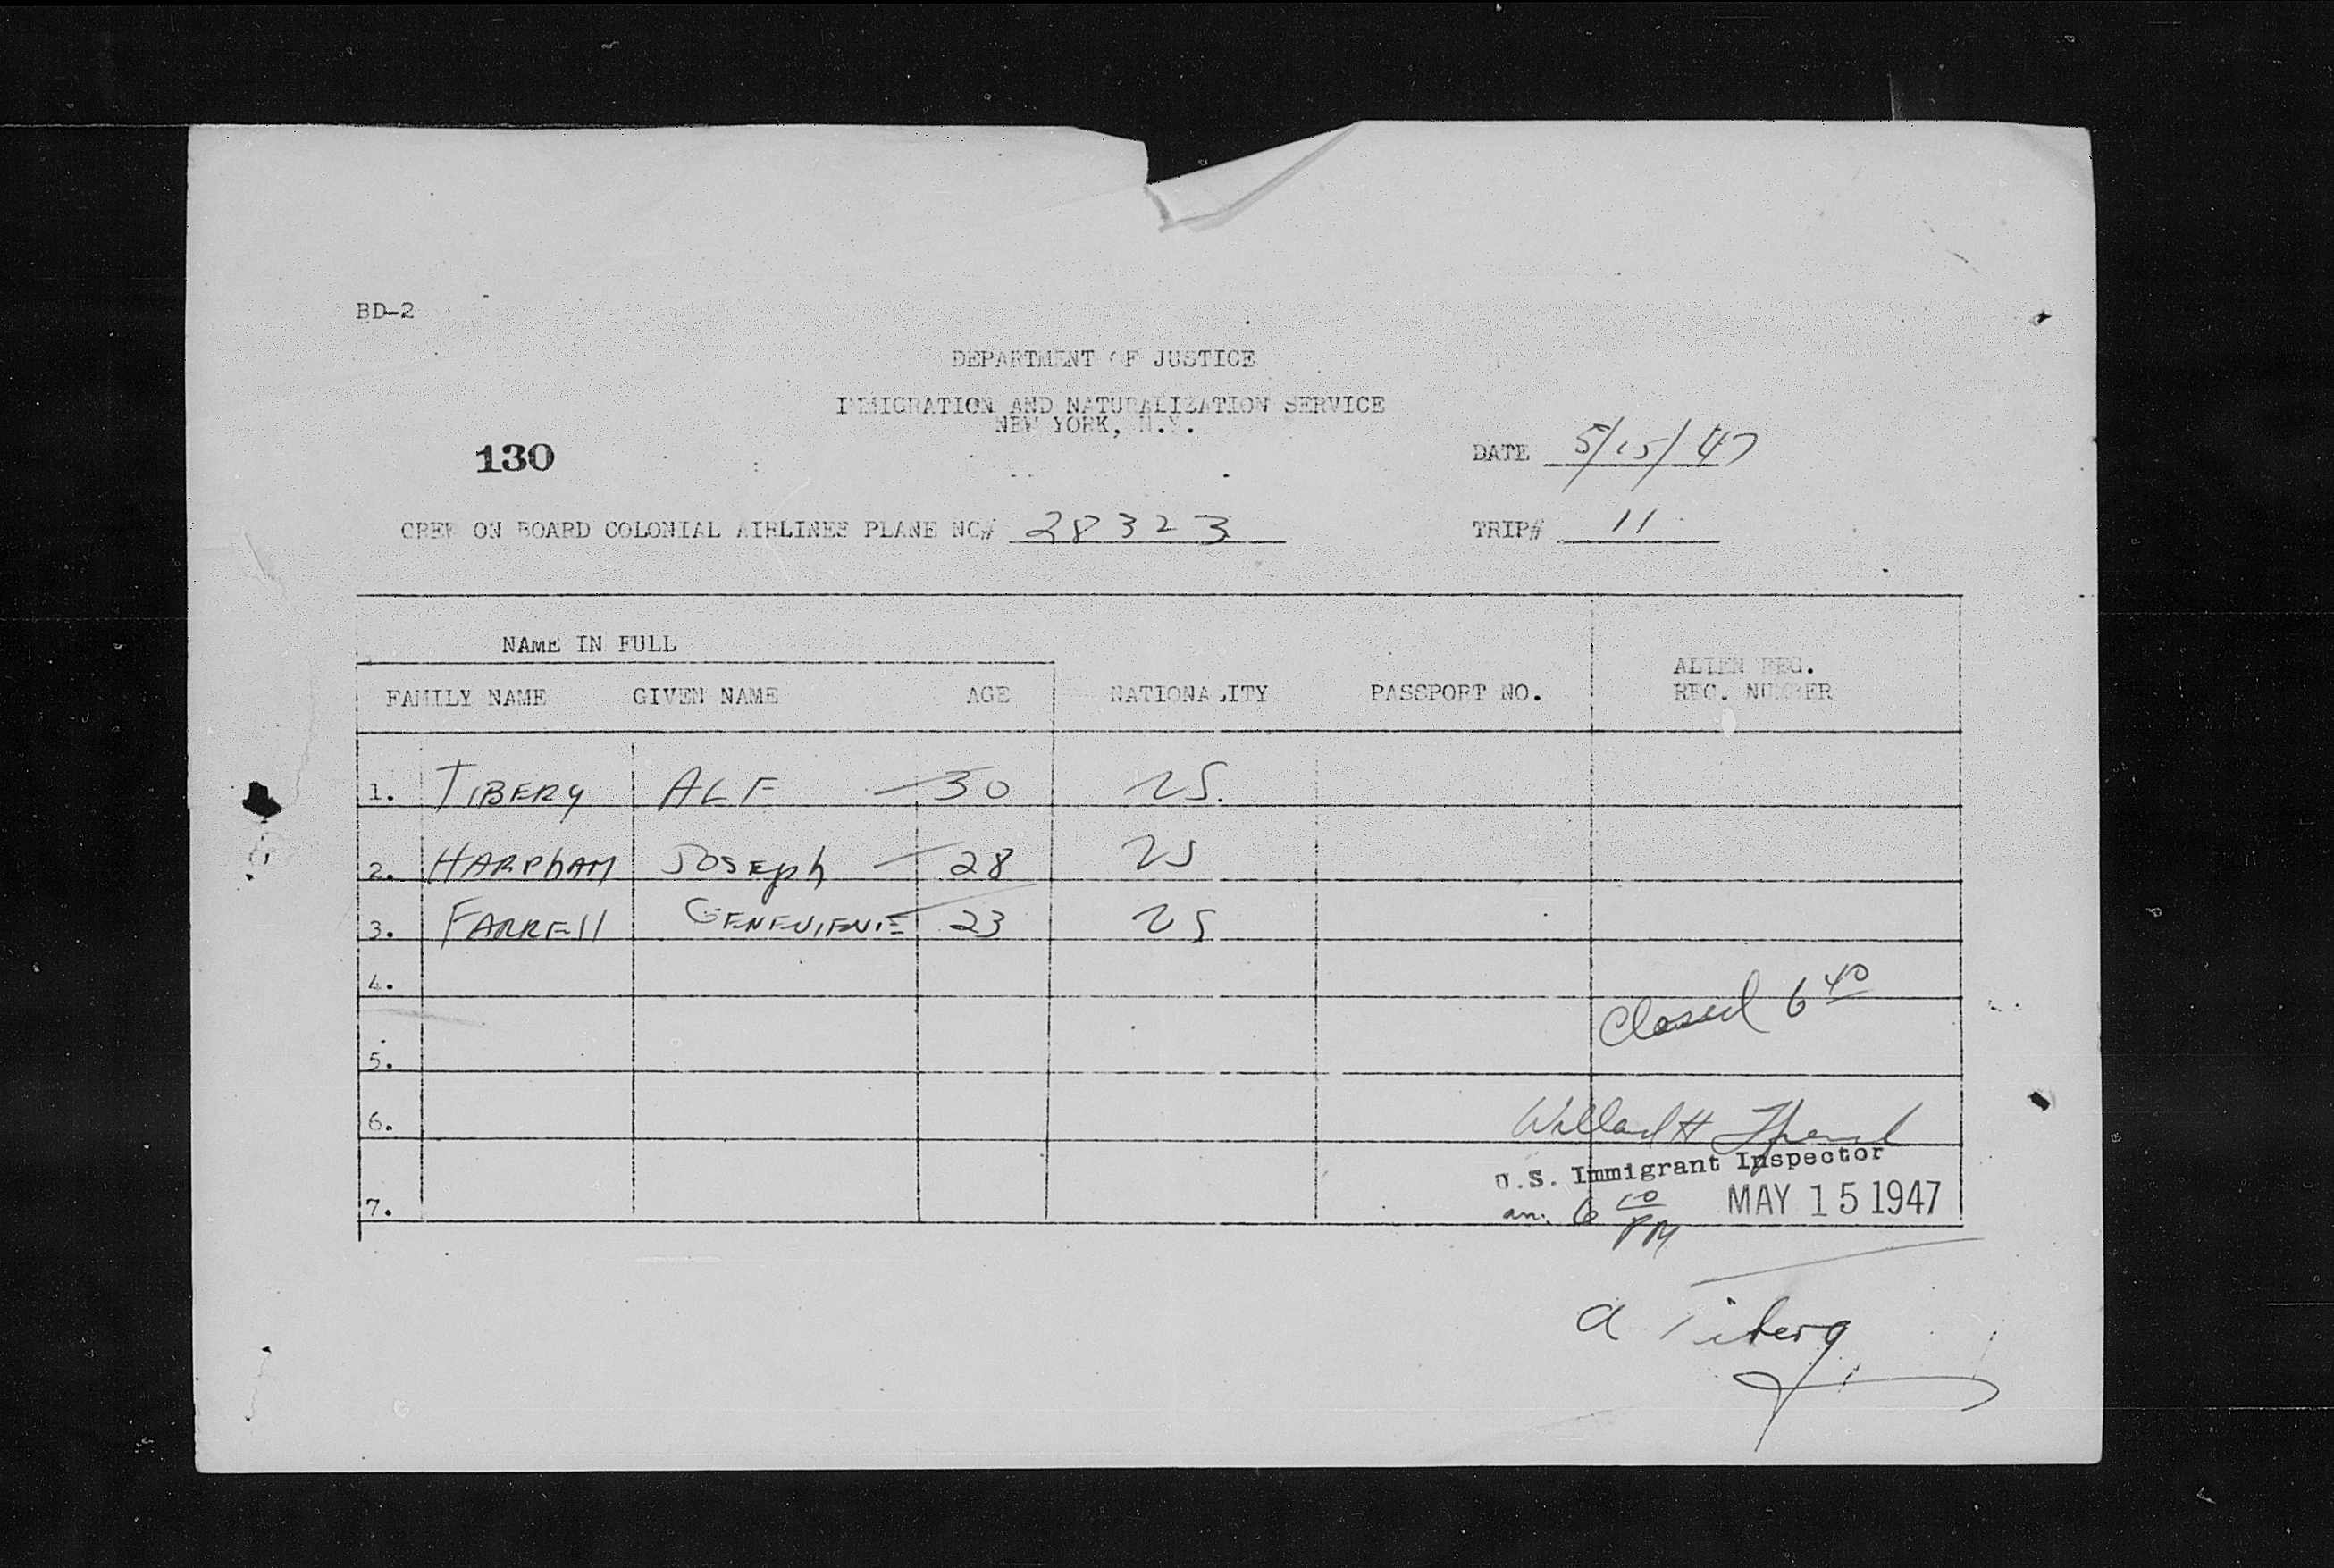 BD-2
DEPARTMENT OF JUSTICE
IMMIGRATION AND NATURALIZATION SERVICE
NEW YORK, N.Y.
130
DATE 5/15/47
CREW ON BOARD COLONIAL AIRLINES PLANE NC# 28323 TRIP# 11
NAME IN FULL
ALIEN REG.
FAMILY NAME GIVEN NAME AGE NATIONALITY PASSPORT NO. REG. NUMBER
1. TIBERY ALF 30 US.
2. HARPhAM JOSEph 28 US
3. FARREll GENEVIEVIE 23 US
4.
Closed 6 40
5.
6. Willard H
U.S. Immigrant Inspector
7. arr. 6 10 PM MAY 15 1947
A Tibery